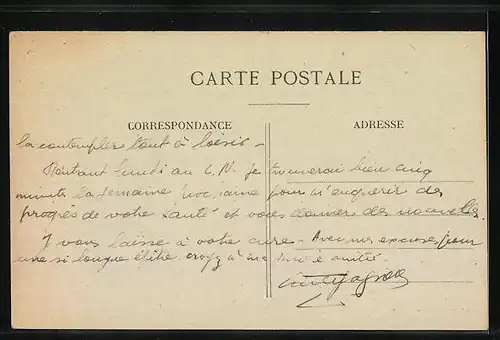 CARTE POSTALE
CORRESPONDANCE
ADRESSE
la contempler tout à loisir -
Rentrant lundi au C.N. je trouverai bien cinq
minutes la semaine prochaine pour m'enquérir des
progrès de votre santé et vous donner des nouvelles.
Je vous laisse à votre cure - Avec mes excuses pour
une si longue croyez à amitié.